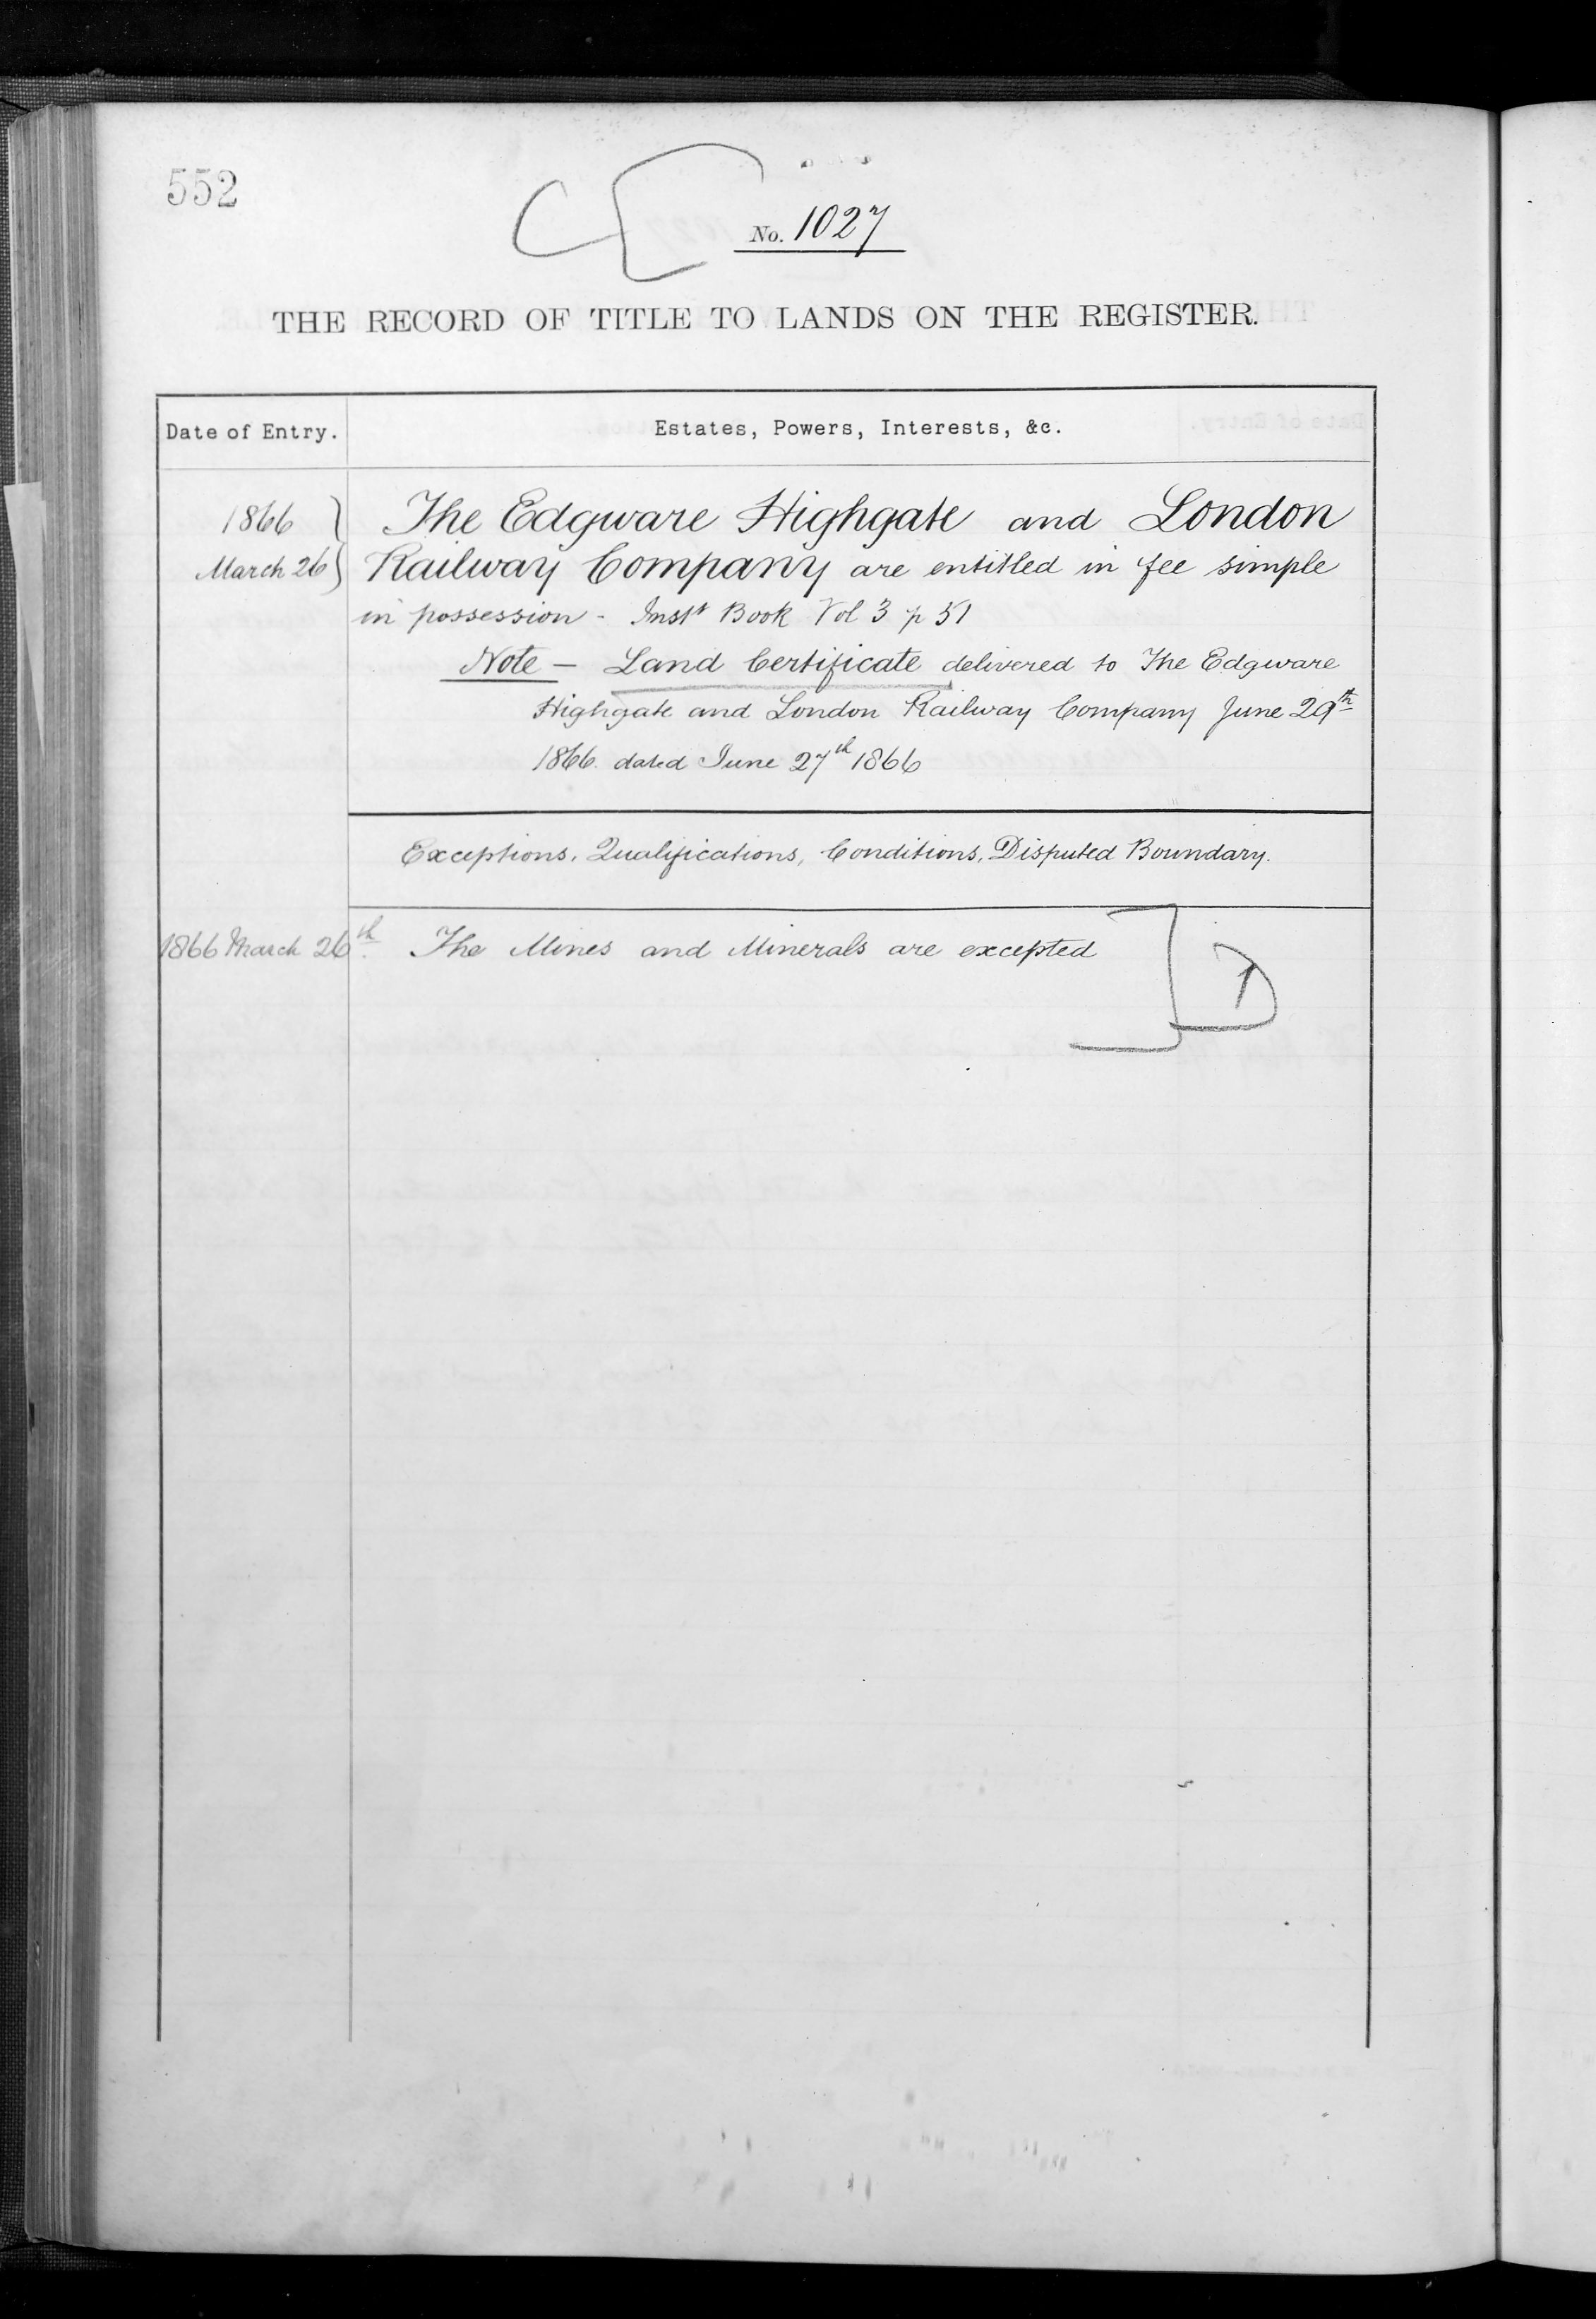 552
No. 1027
THE RECORD OF TITLE TO LANDS ON THE REGISTER.
Date of Entry. Estates, Powers, Interests, &c.
1866 } The Edgware Highgate and London
March 26 } Railway Company are entitled in fee simple
in possession - Inst. Book Vol 3 p 51
Note - Land Certificate delivered to The Edgware
Highgate and London Railway Company June 29th
1866. dated June 27th 1866
Exceptions, Qualifications, Conditions, Disputed Boundary.
1866 March 26th. The Mines and Minerals are excepted